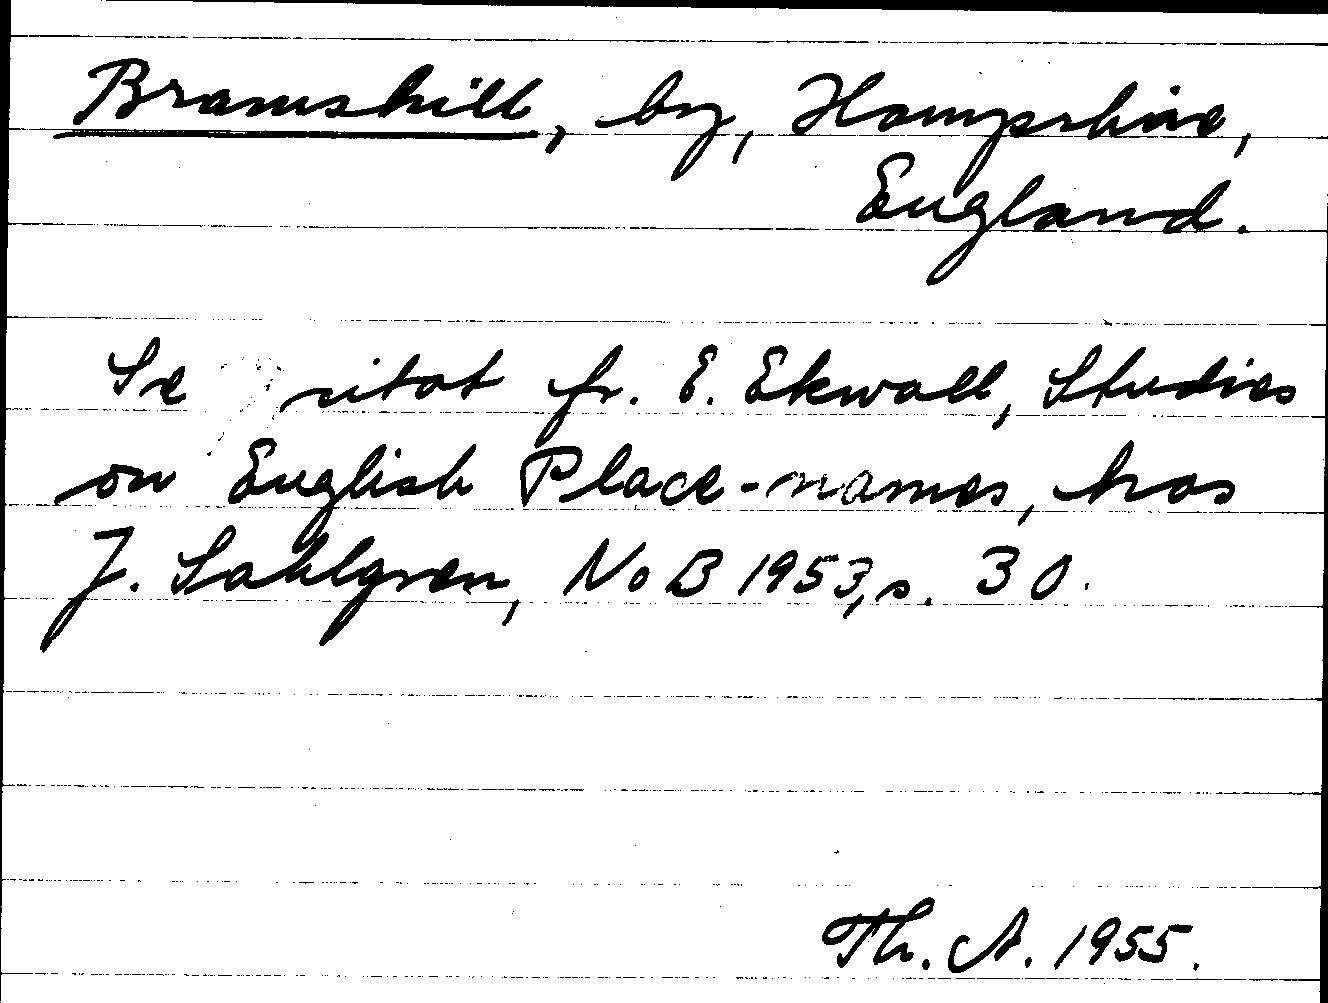 Bramshill, by, Hampshire,
England.
Se citat fr. E. Ekwall, Studies
on English Place-names, hos
J. Sahlgren, NoB 1953, s. 30.
Th. A. 1955.